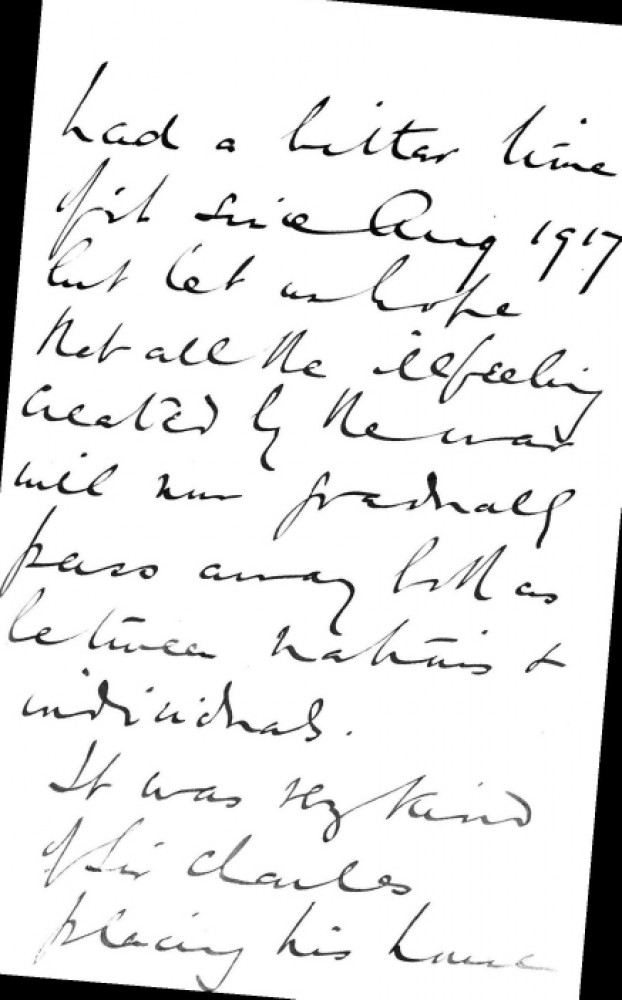 had a bitter time
of it since Aug 1917
but let us hope
that all the ill feeling
created by the war
will now gradually
pass away both as
between nations &
individuals.
It was very kind
of Sir Charles
placing his house